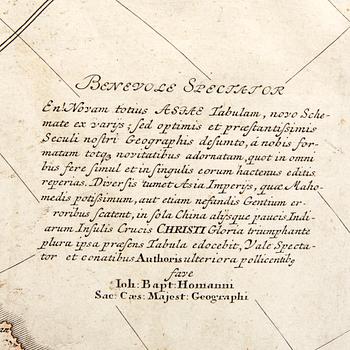 BENEVOLE SPECTATOR
En! Novam totius ASIAE Tabulam, novo Sche-
mate ex varijs; sed optimis et præstantissimis
Seculi nostri Geographis desumto, a nobis for-
matam totq₃ novitatibus adornatam, quot in omni
bus fere simul et in singulis eorum hactenus editis
reperias. Diversis tumet Asia Imperijs, quæ Maho-
medis potissimum, aut etiam nefandis Gentium er-
roribus scatent, in sola China alijsque paucis Indi-
arum Insulis Crucis CHRISTI Gloria triumphante
plura ipsa præsens Tabula edocebit, Vale Specta-
tor et conatibus Authoris ulteriora pollicentibq
fave
Ioh: Bapt: Homanni
Sac: Cæs: Majest: Geographi